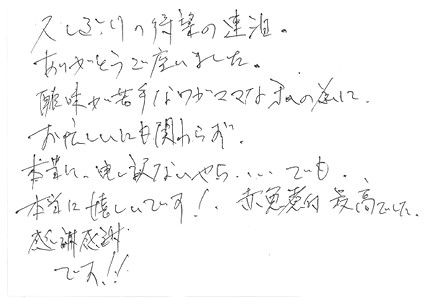 久しぶりの待望の連泊。
ありがとうご座いました。
酸味が苦手なワガママな私の為に、
お忙しいにも関わらず、
本当に、申し訳ないやら、...でも、
本当に嬉しいです！、赤魚煮付 最高でした。
感謝感謝
です!!